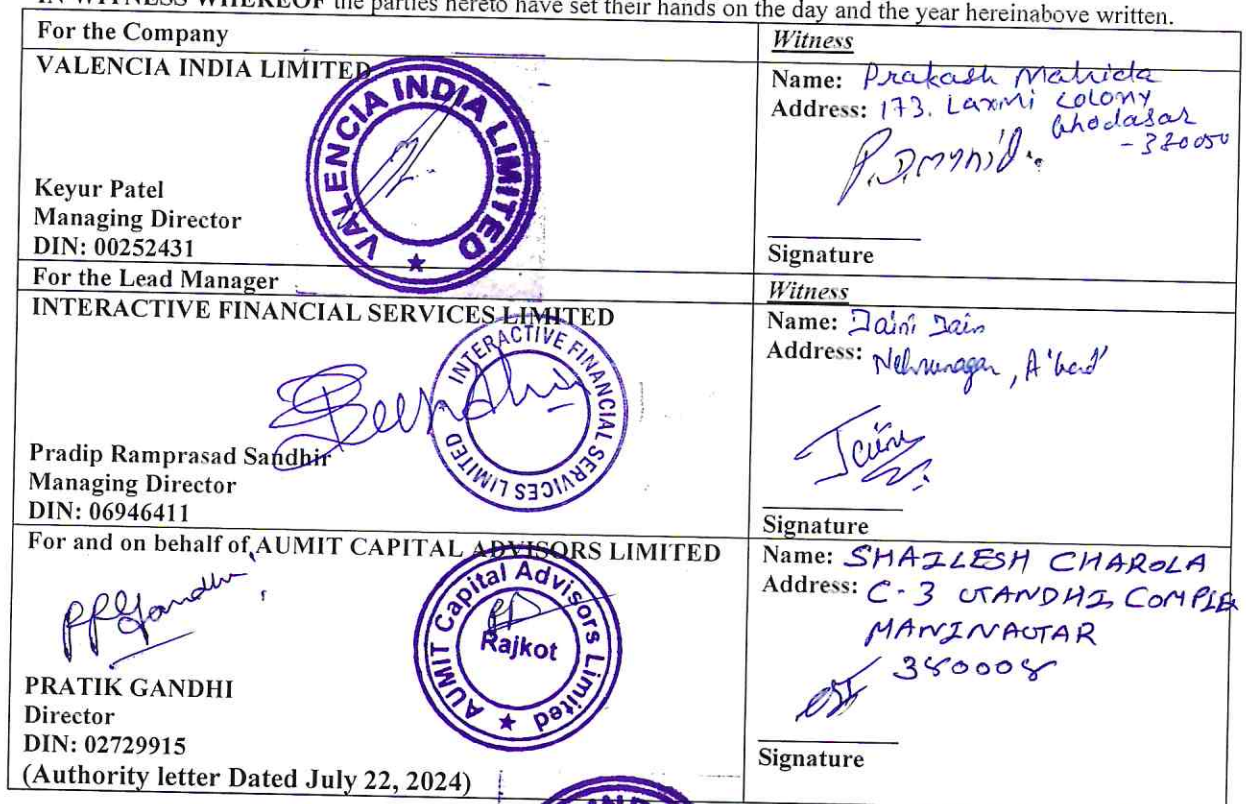 IN WITNESS WHEREOF the parties hereto have set their hands on the day and the year hereinabove written.
For the Company
Witness
VALENCIA INDIA LIMITED
VALENCIA INDIA LIMITED
Keyur Patel
Managing Director
DIN: 00252431
Name: Prakash Mahida
Address: 173. Laxmi Colony
Ghodasar
- 380050
Signature
For the Lead Manager
Witness
INTERACTIVE FINANCIAL SERVICES LIMITED
INTERACTIVE FINANCIAL SERVICES LIMITED
Pradip Ramprasad Sandhir
Managing Director
DIN: 06946411
Name: Jaini Jain
Address: Nehrunagar, A'bad
Signature
For and on behalf of AUMIT CAPITAL ADVISORS LIMITED
PPGandhi
AUMIT Capital Advisors Limited
Rajkot
PRATIK GANDHI
Director
DIN: 02729915
(Authority letter Dated July 22, 2024)
Name: SHAILESH CHAROLA
Address: C-3 GANDHI COMPLEX
MANINAGAR
380008
Signature